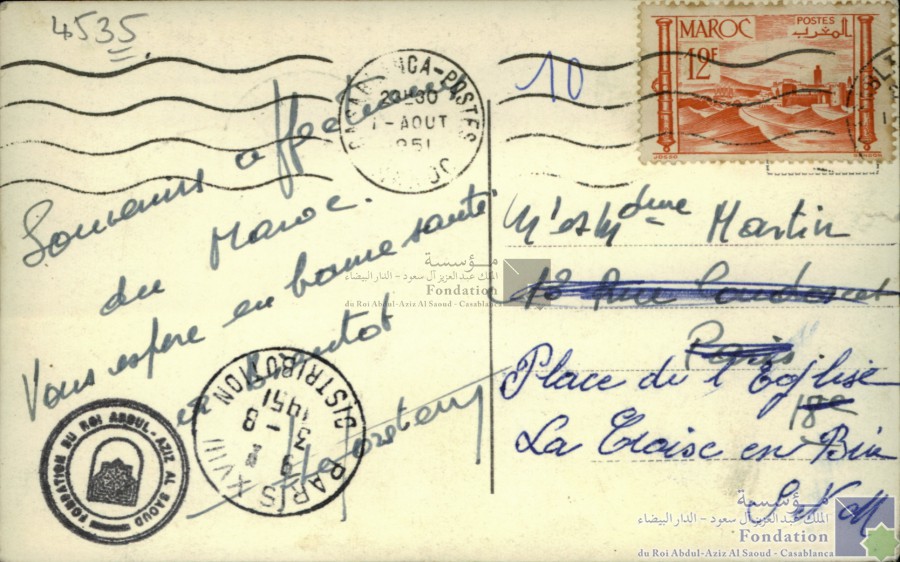 4535
MAROC
POSTES
المغرب
12F
10
CASABLANCA-POSTES
20H30
1-AOUT
951
MAROC
Souvenirs affectueux
du Maroc.
Vous espère en bonne santé
et bientôt
Mr et Mdme Martin
18 Rue Condorcet
Paris
18e
Place de l'Eglise
La
en
مؤسسة
الملك عبد العزيز آل سعود - الدار البيضاء
Fondation
du Roi Abdul-Aziz Al Saoud - Casablanca
PARIS XVIII
DISTRIBUTION
8
1951
FONDATION DU ROI ABDUL-AZIZ AL SAOUD
مؤسسة
الملك عبد العزيز آل سعود - الدار البيضاء
Fondation
du Roi Abdul-Aziz Al Saoud - Casablanca